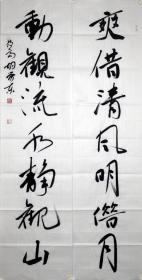 爽借清风明借月
動觀流水静觀山